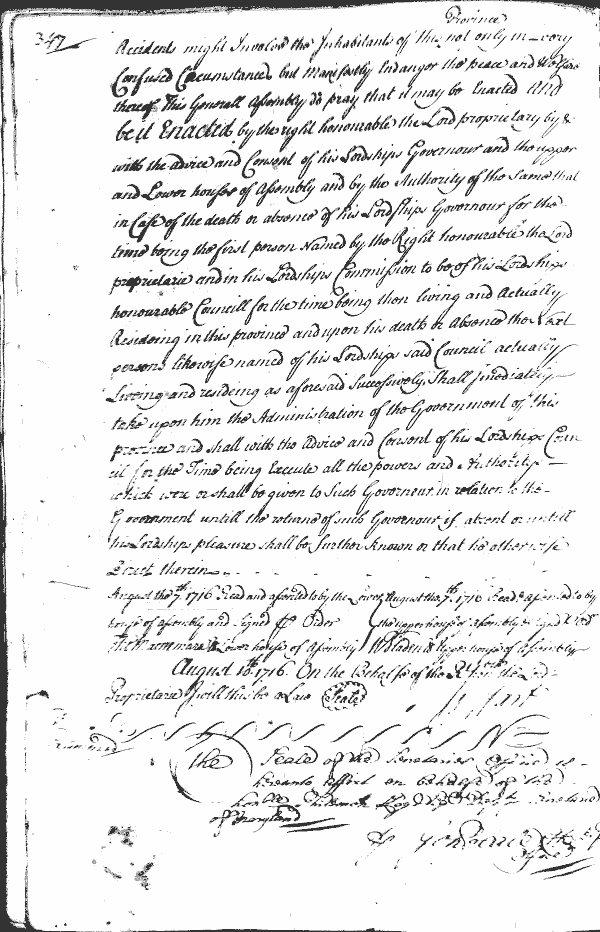 347
Province
Accidents might Involve the Inhabitants of this not only in very
Confused Circumstances but Manifestly Endanger the peace and Welfare
thereof This Generall Assembly do pray that it may be Enacted And
be it Enacted by the right honourable the Lord proprietary by &
with the advice and Consent of his Lordships Governour and the upper
and Lower houses of Assembly and by the Authority of the Same that
in Case of the death or absence of his Lordships Governour for the
time being the first person Named by the Right honourable the Lord
proprietarie and in his Lordships Commission to be of his Lordships
honourable Councill for the time being then living and Actually
Resideing in this province and upon his death or Absence the Next
persons likewise named of his Lordships said Council actually
Liveing and resideing as aforesaid Successively Shall Jmediately
take upon him the Administration of the Government of this
province and shall with the Advice and Consent of his Lordships Coun
cil for the Time being Execute all the powers and Authoritys
which were or shall be given to Such Governeur in relation to the
Government untill the returne of such Governour if absent or untill
his Lordships pleasure shall be further known or that he otherwise
Direct therein
August the 7th 1716 Read and assented to by the Lower
house of assembly and Signed p Order
Lower house of Assembly
August the 7th 1716 Read & assented to by
the upper house of Assembly & signed p Order
W Bladen Upper house of Assembly
August 10th 1716. On the Behalfe of the Rt honble the Lord
Proprietarie I will this be a Law Seale
Jo Hart
the Seale of the Secretaries Office is
hereunto affixt on behalfe of the
honble Thomas
of Maryland